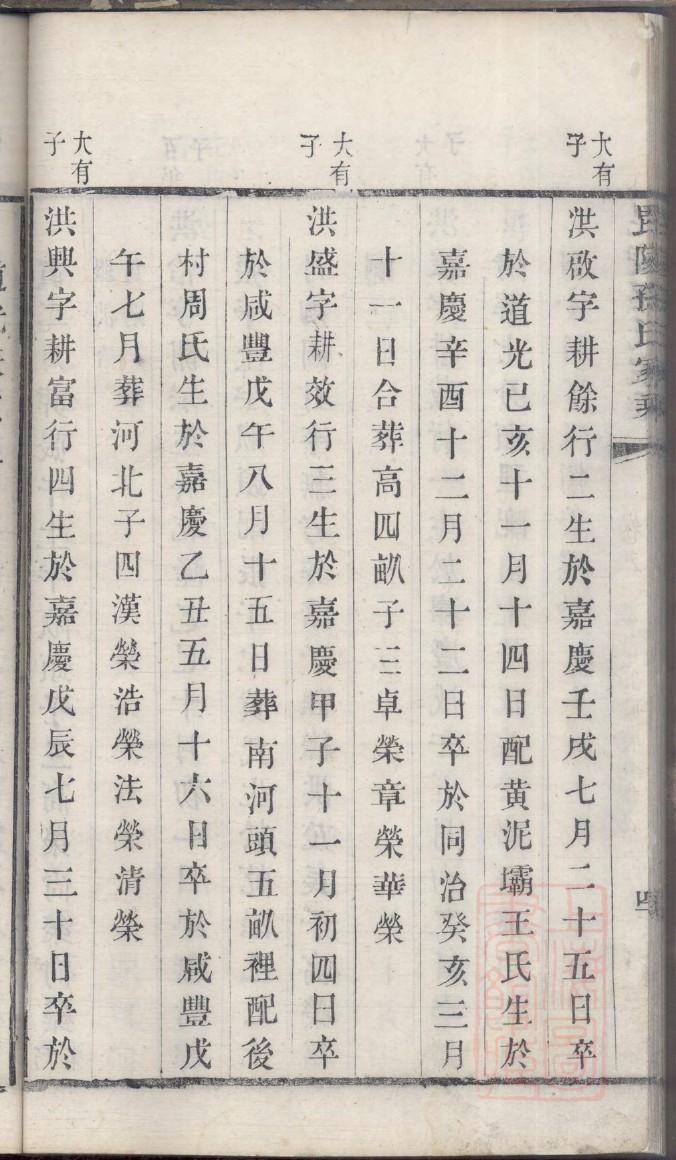 大有
子
洪啟字耕餘行二生於嘉慶壬戌七月二十五日卒
於道光己亥十一月十四日配黃泥壩王氏生於
嘉慶辛酉十二月二十二日卒於同治癸亥三月
十一日合葬高四畝子三卓榮章榮華榮
大有
子
洪盛字耕效行三生於嘉慶甲子十一月初四日卒
於咸豐戊午八月十五日葬南河頭五畝裡配後
村周氏生於嘉慶乙丑五月十六日卒於咸豐戊
午七月葬河北子四漢榮浩榮法榮清榮
大有
子
洪興字耕富行四生於嘉慶戊辰七月三十日卒於